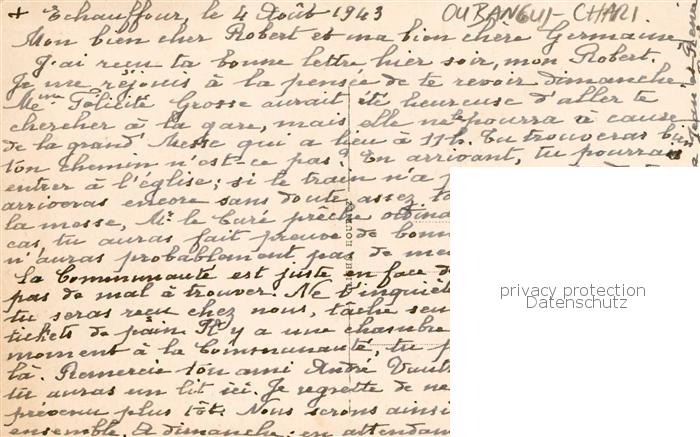 + Echauffour, le 4 Août 1943 OUBANGUI-CHARI.
Mon bien cher Robert et ma bien chère Germaine
J'ai reçu ta bonne lettre hier soir, mon Robert.
Je me réjouis à la pensée de te revoir dimanche
Me Félicité Grosse aurait été heureuse d'aller te
chercher à la gare, mais elle ne le pourra à cause
de la grand' Messe qui a lieu à 11h. Tu trouveras
ton chemin n'est-ce pas? En arrivant, tu pourrais
entrer à l'église; si le train n'a
arriveras encore sans doute assez
la messe, Mr le Curé prêche
cas, tu auras fait preuve de
n'auras probablement pas de
la Communauté est juste en face
pas de mal à trouver. Ne t'inquiète
tu seras reçu chez nous, tâche
tickets de pain. Il y a une chambre
moment à la Communauté, tu
là. Remercie ton ami André
tu auras un lit ici. Je regrette de ne
prévenu plus tôt. Nous serons ainsi
ensemble. A dimanche; en attendan
privacy protection
Datenschutz